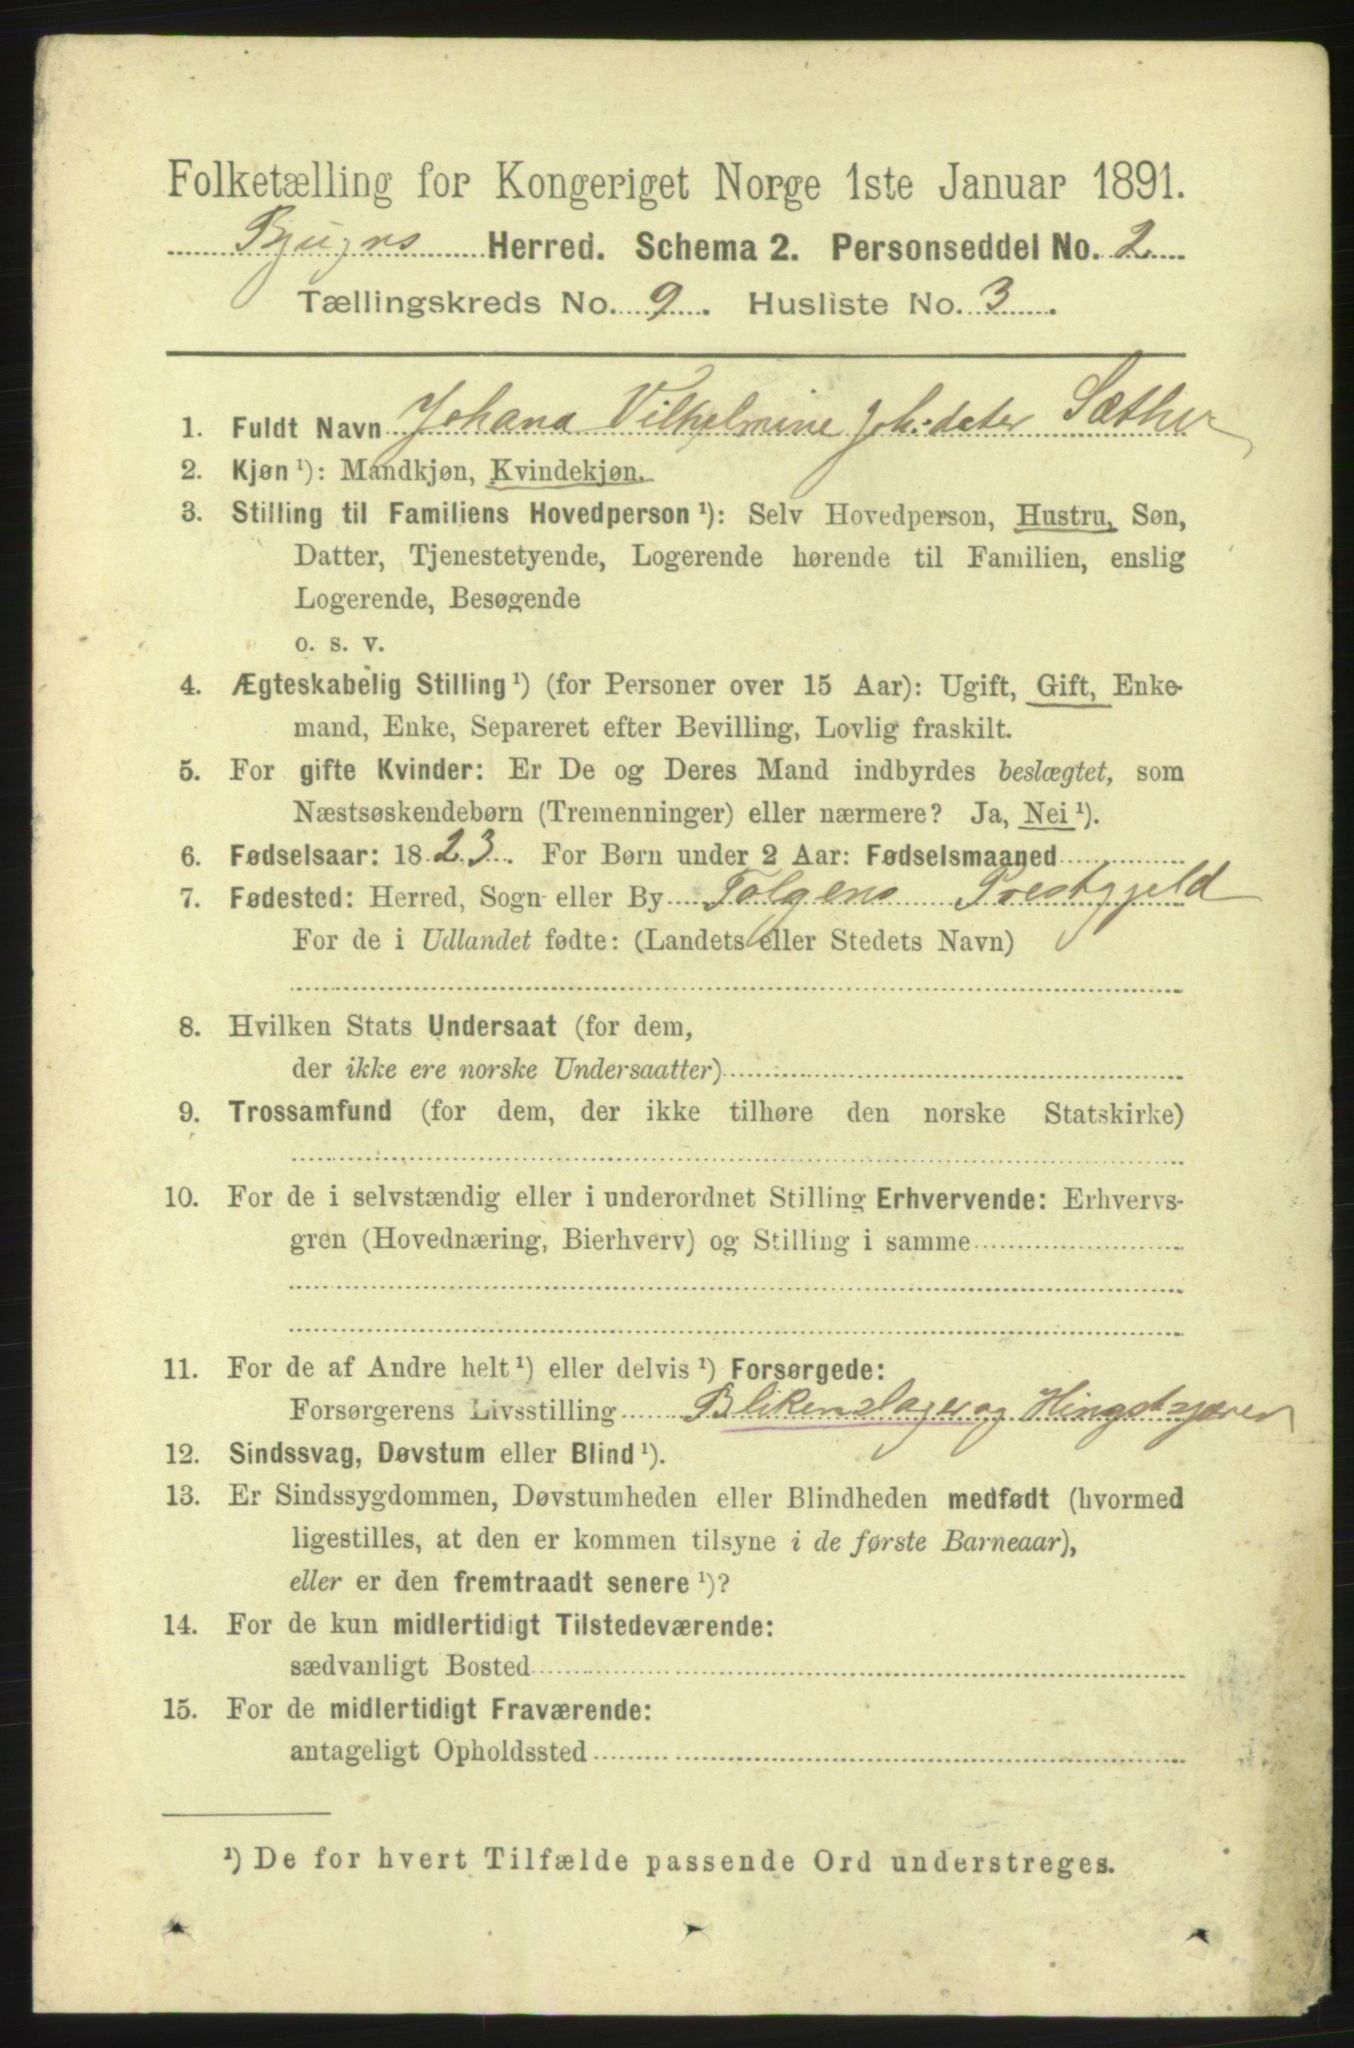 Folketælling for Kongeriget Norge 1ste Januar 1891.
Bjugns Herred. Schema 2. Personseddel No. 2
Tællingskreds No. 9. Husliste No. 3.
1. Fuldt Navn Johana Vilhelmine Joh.dater Sæther
2. Kjøn ¹): Mandkjøn, Kvindekjøn.
3. Stilling til Familiens Hovedperson ¹): Selv Hovedperson, Hustru, Søn,
Datter, Tjenestetyende, Logerende hørende til Familien, enslig
Logerende, Besøgende
o. s. v.
4. Ægteskabelig Stilling ¹) (for Personer over 15 Aar): Ugift, Gift, Enke-
mand, Enke, Separeret efter Bevilling, Lovlig fraskilt.
5. For gifte Kvinder: Er De og Deres Mand indbyrdes beslægtet, som
Næstsøskendebørn (Tremenninger) eller nærmere? Ja, Nei ¹).
6. Fødselsaar: 1823. For Børn under 2 Aar: Fødselsmaaned
7. Fødested: Herred, Sogn eller By Tolgens Prestgjeld
For de i Udlandet fødte: (Landets eller Stedets Navn)
8. Hvilken Stats Undersaat (for dem,
der ikke ere norske Undersaatter)
9. Trossamfund (for dem, der ikke tilhøre den norske Statskirke)
10. For de i selvstændig eller i underordnet Stilling Erhvervende: Erhvervs-
gren (Hovednæring, Bierhverv) og Stilling i samme
11. For de af Andre helt ¹) eller delvis ¹) Forsørgede:
Forsørgerens Livsstilling Blikenslager og Hingstsjærer
12. Sindssvag, Døvstum eller Blind ¹).
13. Er Sindssygdommen, Døvstumheden eller Blindheden medfødt (hvormed
ligestilles, at den er kommen tilsyne i de første Barneaar),
eller er den fremtraadt senere ¹)?
14. For de kun midlertidigt Tilstedeværende:
sædvanligt Bosted
15. For de midlertidigt Fraværende:
antageligt Opholdssted
¹) De for hvert Tilfælde passende Ord understreges.